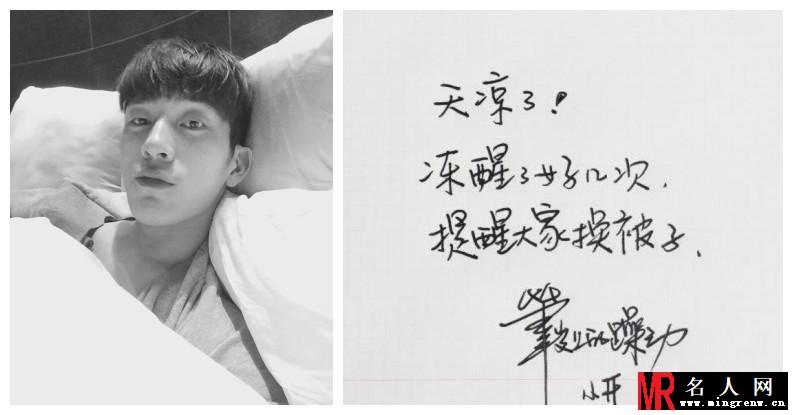 天凉了!
冻醒了好几次,
提醒大家换被子,
的躁动
小开
MR 名人网
www.mingrenw.cn